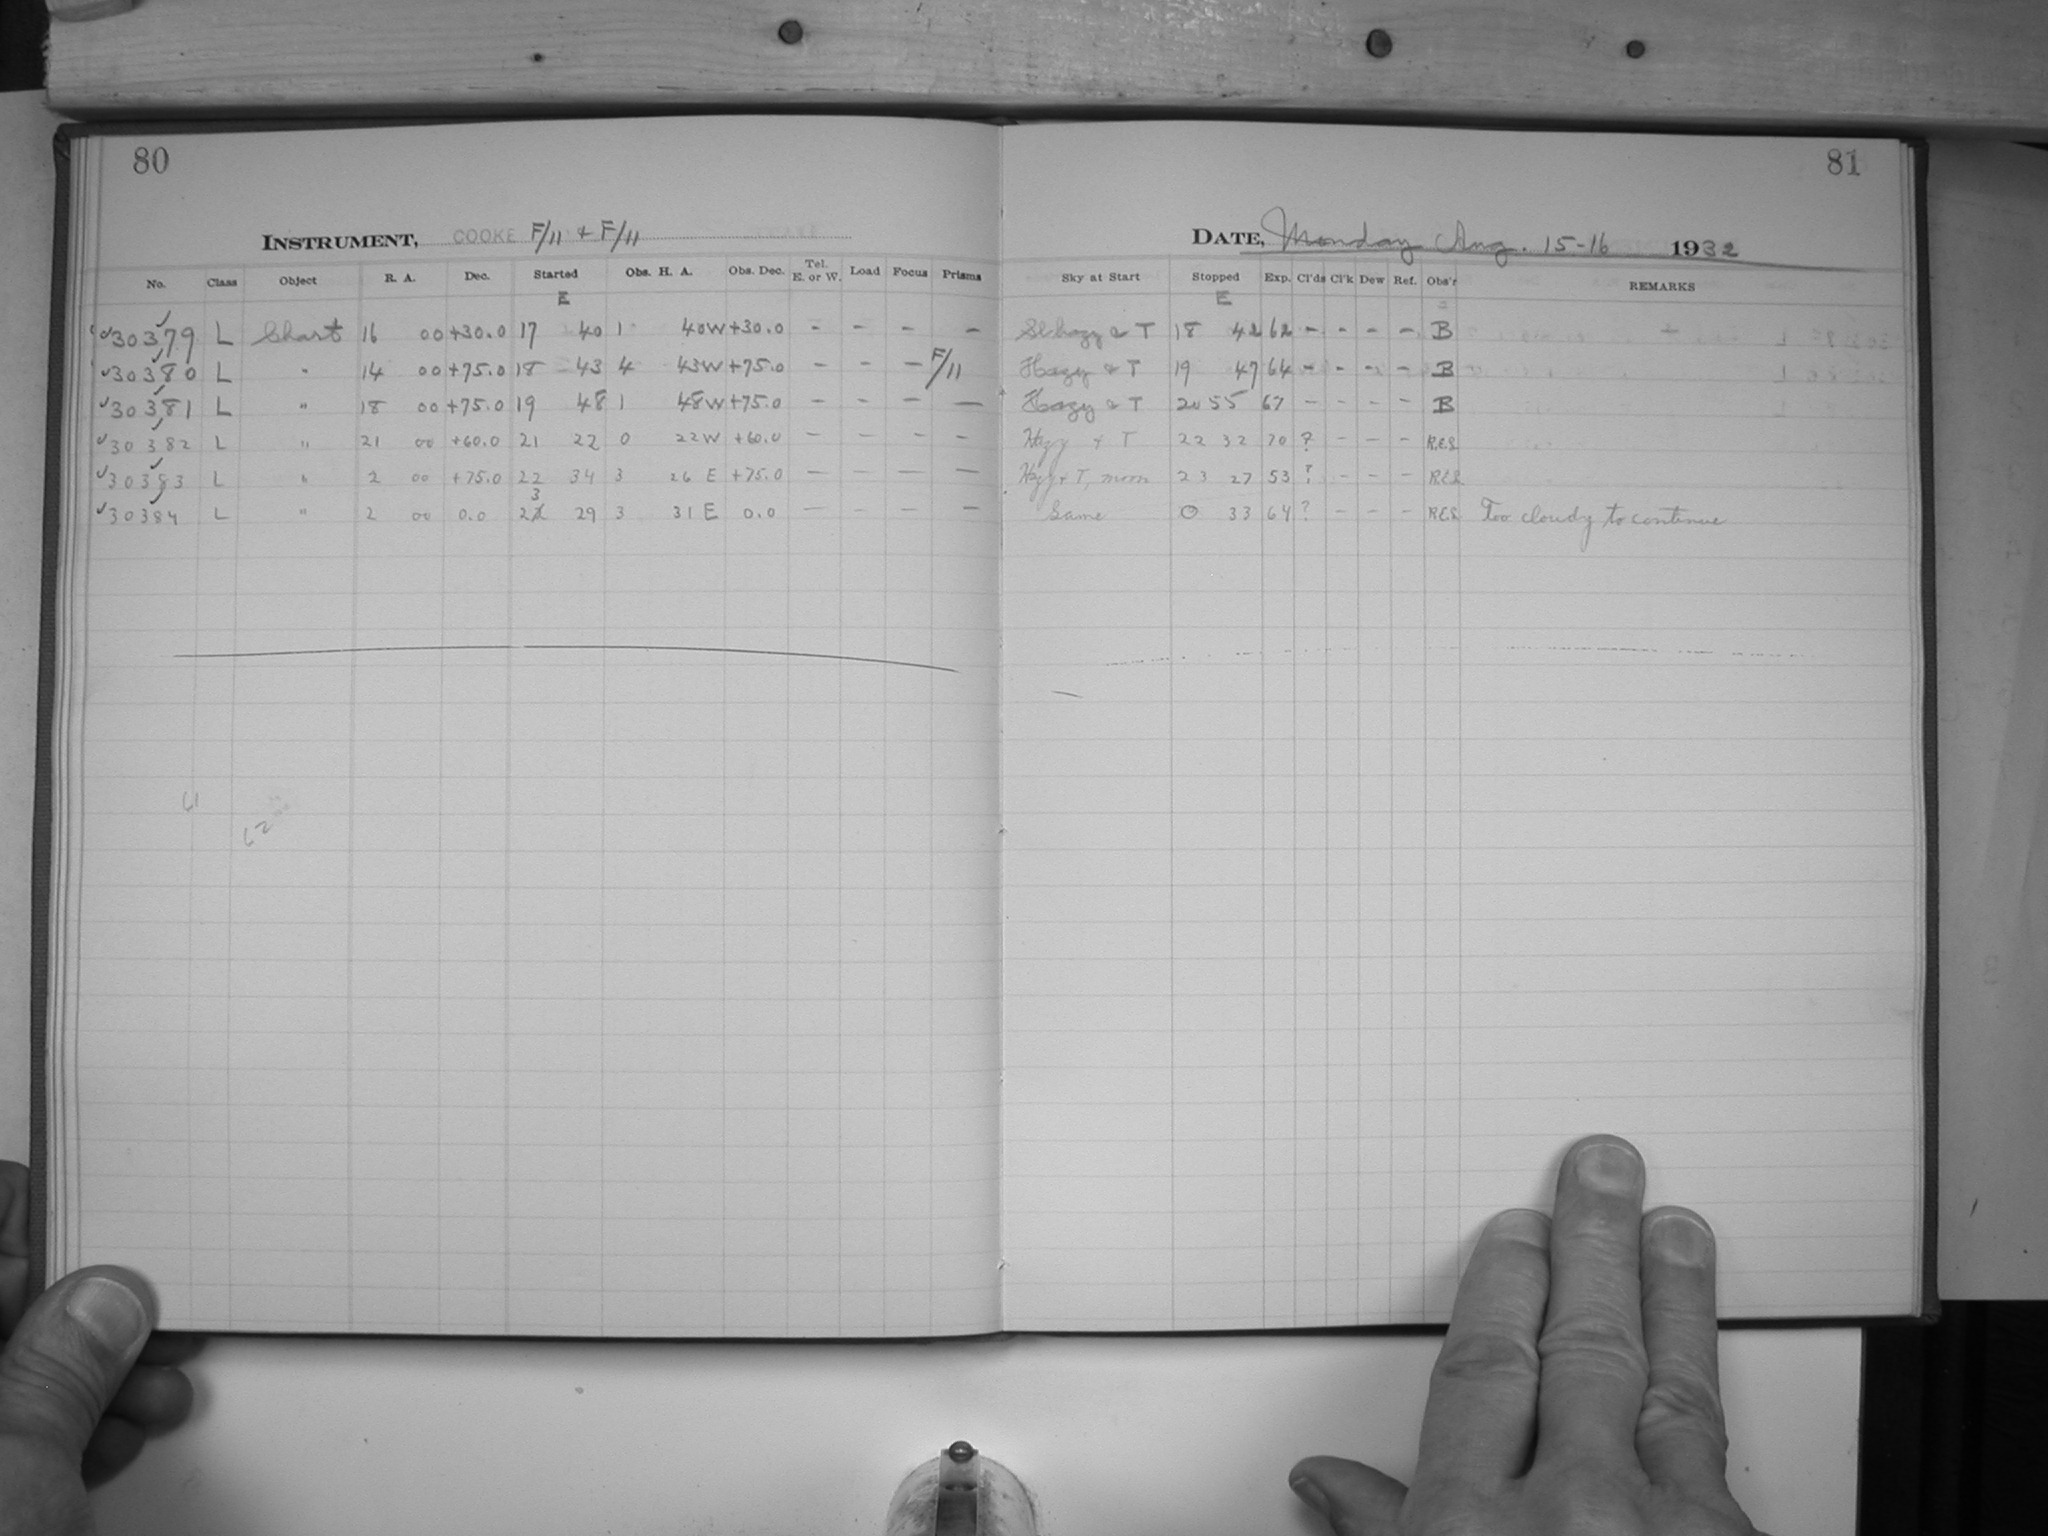 80
INSTRUMENT, COOKE F/11 & F/11
No. Class Object R. A. Dec. Started Obs. H. A. Obs. Dec. Tel. E. or W. Load Focus Prisms
E
30379 L Chart 16 00 +30.0 17 40 1 40W +30.0 - - - -
30380 L " 14 00 +75.0 18 43 4 43W +75.0 - - - F/11
30381 L " 18 00 +75.0 19 48 1 48W +75.0 - - - -
30382 L " 21 00 +60.0 21 22 0 22W +60.0 - - - -
30383 L " 2 00 +75.0 22 34 3 26 E +75.0 - - - -
3
30384 L " 2 00 0.0 22 29 3 31 E 0.0 - - - -
61
62
81
DATE, Monday Aug. 15-16 1932
Sky at Start Stopped Exp. Cl'ds Cl'k Dew Ref. Obs'r REMARKS
E
Sl hazy & T 18 42 62 - - - - B
Hazy & T 19 47 64 - - - - B
Hazy & T 20 55 67 - - - - B
Hzy & T 22 32 70 ? - - - R.E.S.
Hzy & T, moon 23 27 53 ? - - - R.E.S.
Same 0 33 64 ? - - - R.E.S. Too cloudy to continue